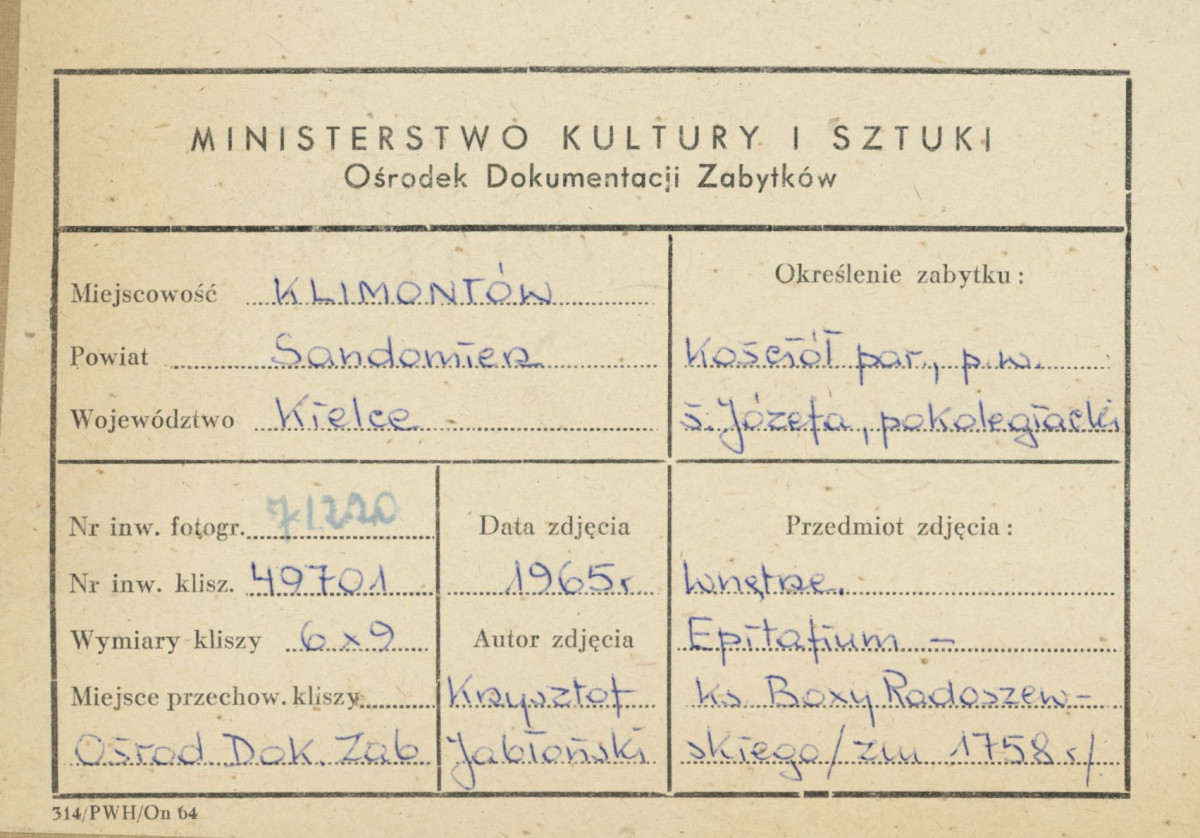 MINISTERSTWO KULTURY I SZTUKI
Ośrodek Dokumentacji Zabytków
Miejscowość KLIMONTÓW
Powiat Sandomierz
Województwo Kielce
Określenie zabytku:
Kościół par., p.w.
ś. Józefa, pokolegiacki
Nr inw. fotogr. 71220
Nr inw. klisz. 49701
Wymiary kliszy 6x9
Miejsce przechow. kliszy
Ośrod. Dok. Zab
Data zdjęcia
1965r.
Autor zdjęcia
Krzysztof
Jabłoński
Przedmiot zdjęcia:
Wnętrze.
Epitafium –
ks. Boxy Radoszew-
skiego/zm 1758 r/.
314/PWH/On 64